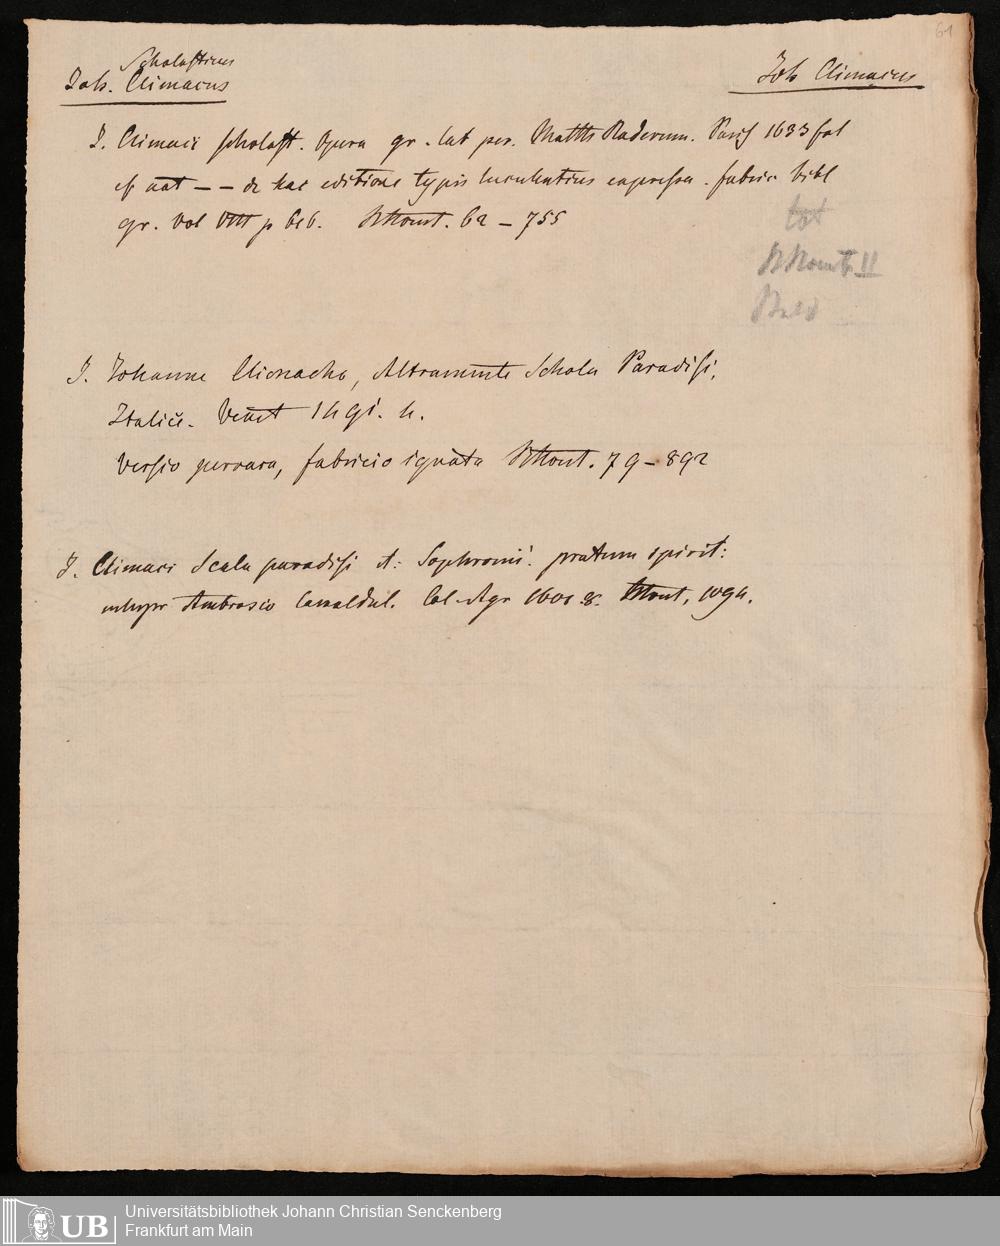 61
Scholasticus
Joh. Climacus
Joh Climacus
J. Climaci scholast. Opera gr. lat per. Matth Raderum. Paris 1633 fol
de hac editione typis luculentius expressa. fabric bibl
gr. Vol VIII p 616. 62 – 755
tot
II
J. Johanne Climacho, Altramente Schola Paradisi,
Italice. Venet 1491. 4.
Versio perrara, fabricio ignota 79 – 892
J. Climaci Scala paradisi et: Sophronii. pratum spirit:
interpr Ambrosio Camaldul. Col. Agr 1601. 8. 1094.
Universitätsbibliothek Johann Christian Senckenberg
UB
Frankfurt am Main